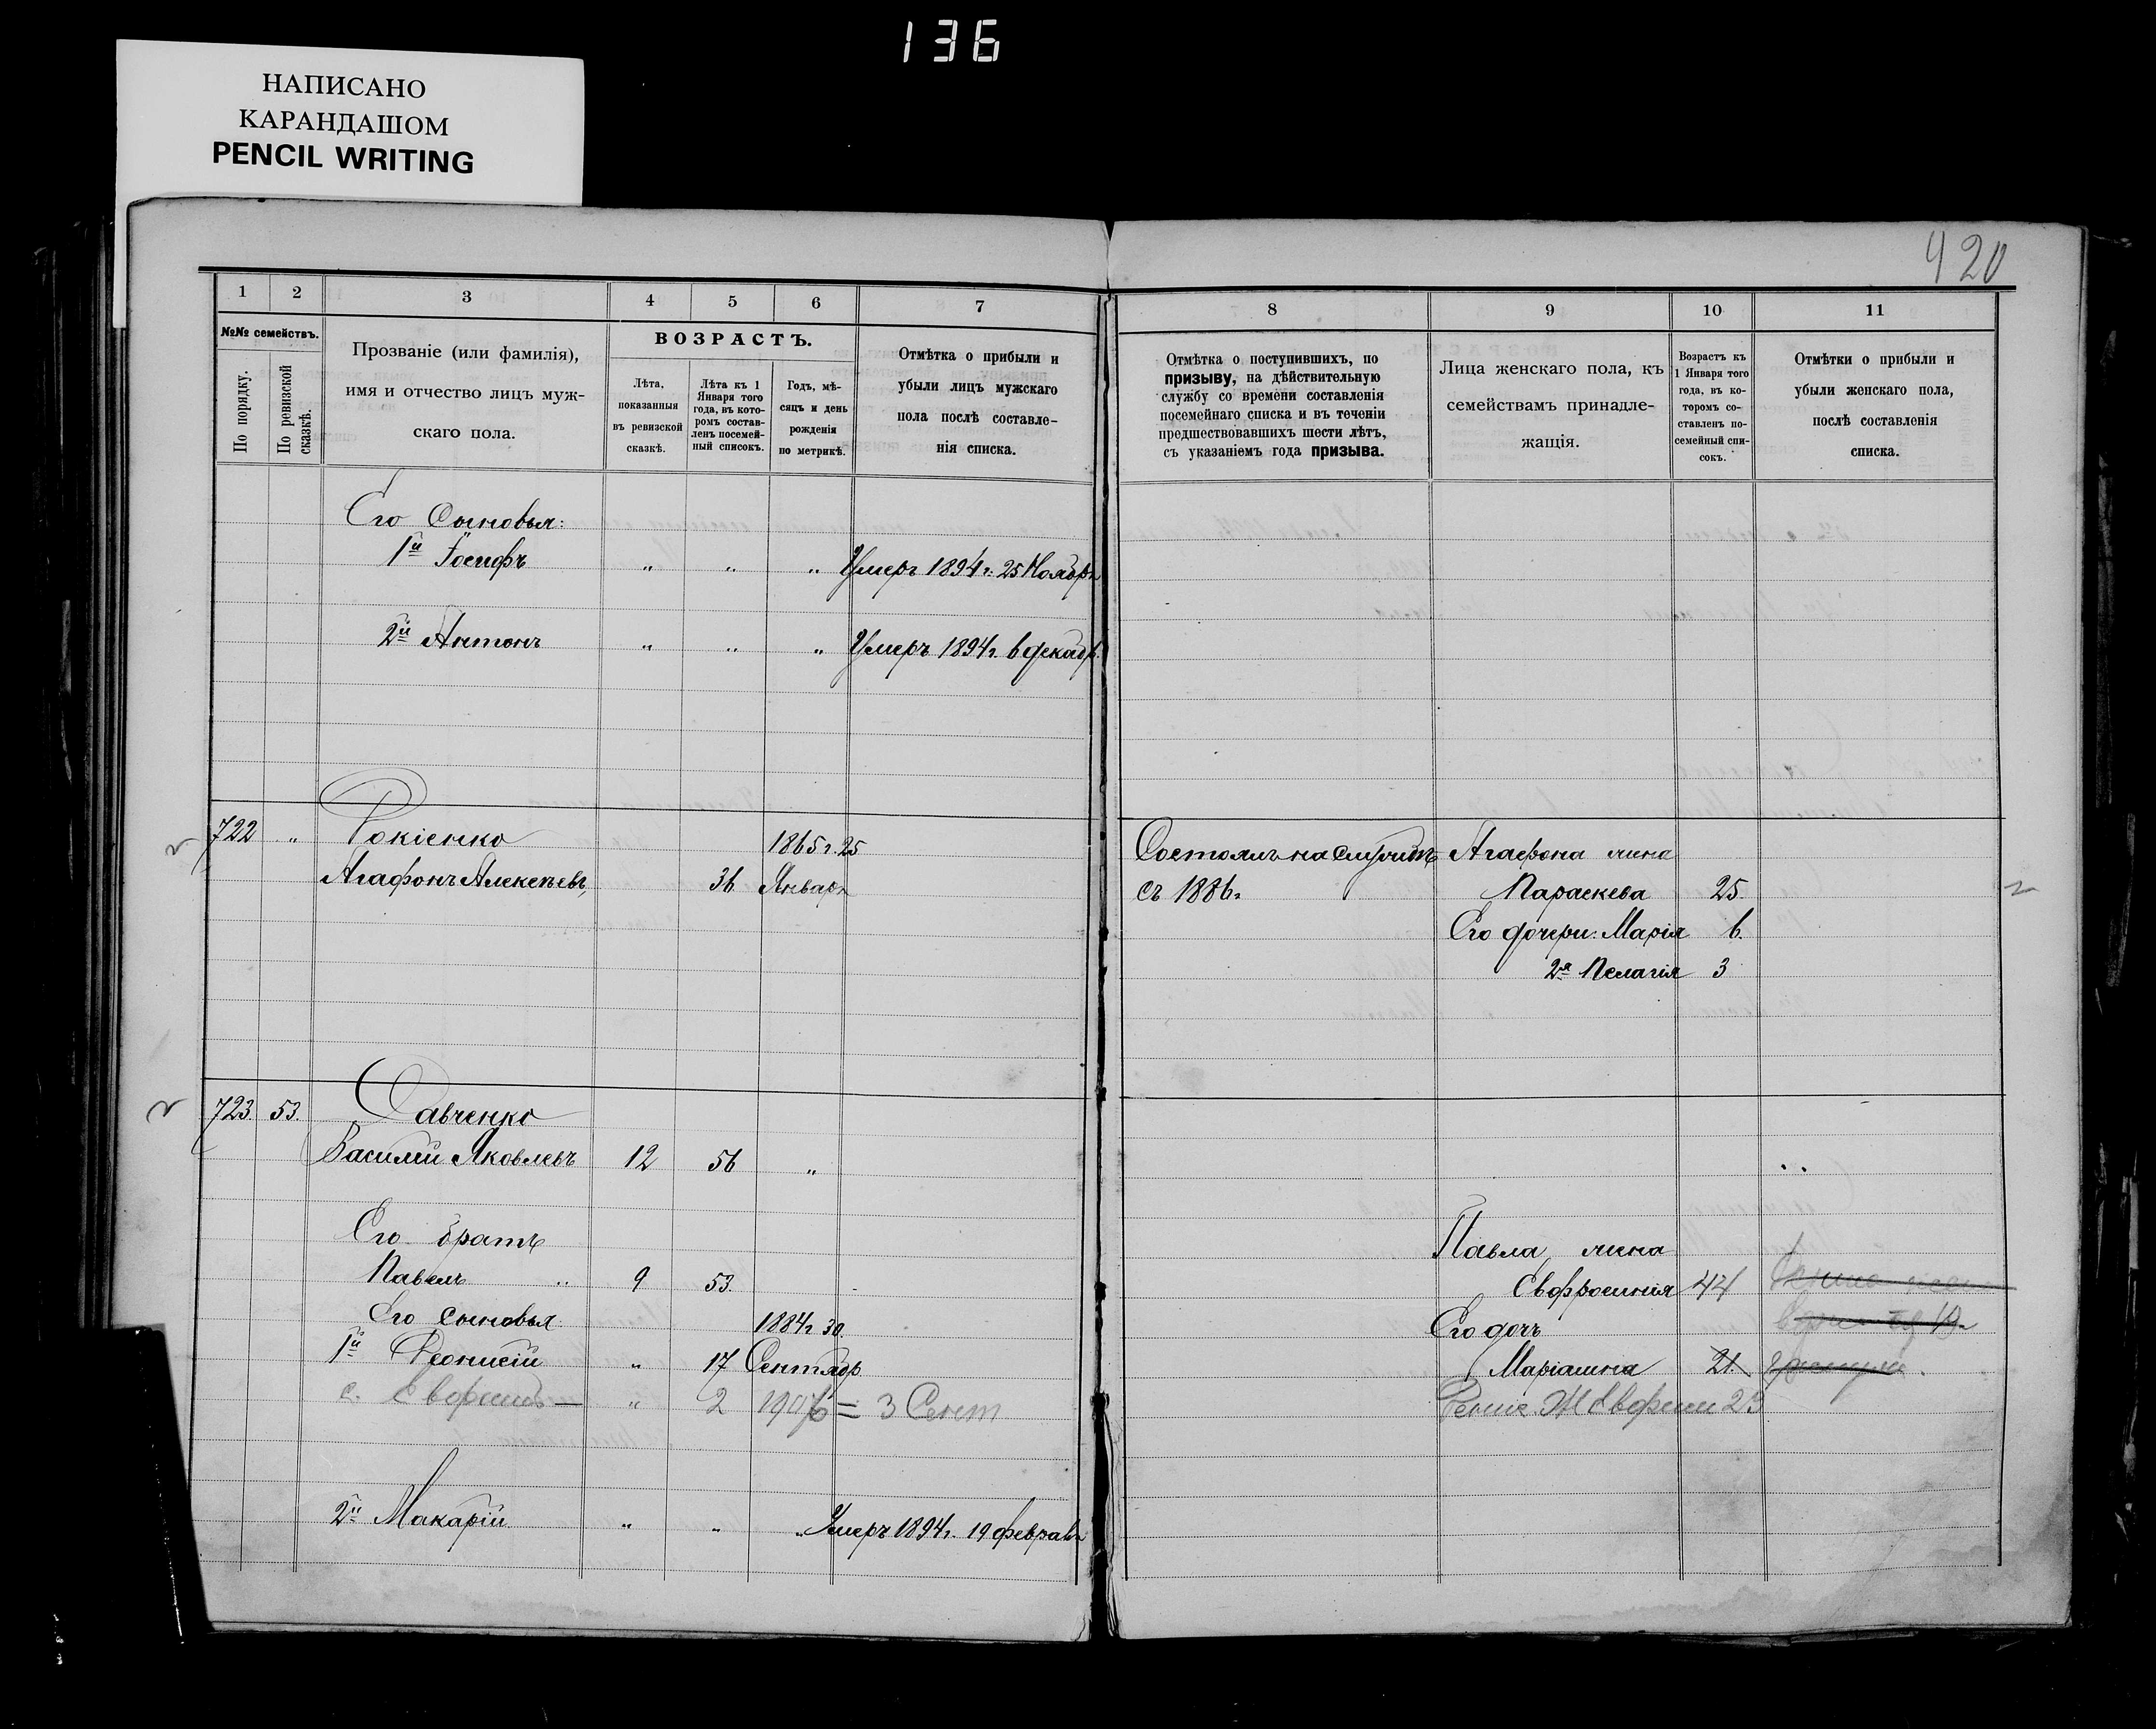 136
НАПИСАНО
КАРАНДАШОМ
PENCIL WRITING
420
1 2 3 4 5 6 7
№№ семействъ.
По порядку.
По ревизской сказкѣ.
Прозваніе (или фамилія),
имя и отчество лицъ муж-
скаго пола.
ВОЗРАСТЪ.
Лѣта,
показанныя
въ ревизской
сказкѣ.
Лѣта къ 1
Января того
года, въ кото-
ромъ состав-
ленъ посемей-
ный списокъ.
Годъ, мѣ-
сяцъ и день
рожденія
по метрикѣ.
Отмѣтка о прибыли и
убыли лицъ мужскаго
пола послѣ составле-
нія списка.
8 9 10 11
Отмѣтка о поступившихъ, по
призыву, на дѣйствительную
службу со времени составленія
посемейнаго списка и въ теченіи
предшествовавшихъ шести лѣтъ,
съ указаніемъ года призыва.
Лица женскаго пола, къ
семействамъ принадле-
жащія.
Возрастъ къ
1 Января того
года, въ ко-
торомъ со-
ставленъ по-
семейный спи-
сокъ.
Отмѣтки о прибыли и
убыли женскаго пола,
послѣ составленія
списка.
Его Сыновья:
1й Іосифъ " " " Умеръ 1894 г. 25 Ноября
2й Антонъ " " " Умеръ 1894 г. 6 декабр.
722 " Рокіенко 1865 г. 25
Агафонъ Алексѣевъ, 36 Января
Состоялъ на службѣ Агафона жена
съ 1886 г. Параскева 25.
Его дочери: Марія 6.
2я Пелагія 3
723. 53. Савченко
Василій Яковлевъ 12 56 "
Его братъ
Павелъ " 9 53.
Его сыновья 1884 г. 30.
1й Деонисій " 17 Сентябр
с. " 2 3 Сент
2й Макарій " " " Умеръ 1894 г. 19 февраля
Павла жена
Евфросинія 44
Его дочь
Маріанна 21.
Ж 23